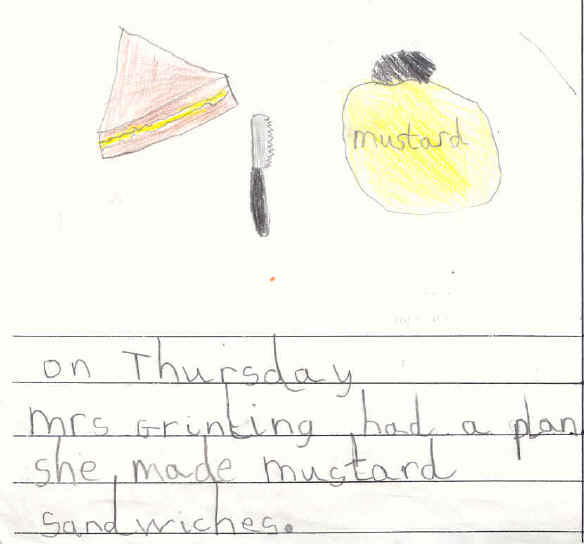 mustard
on Thursday
mrs Grinling had a plan
she made mustard
sandwiches.